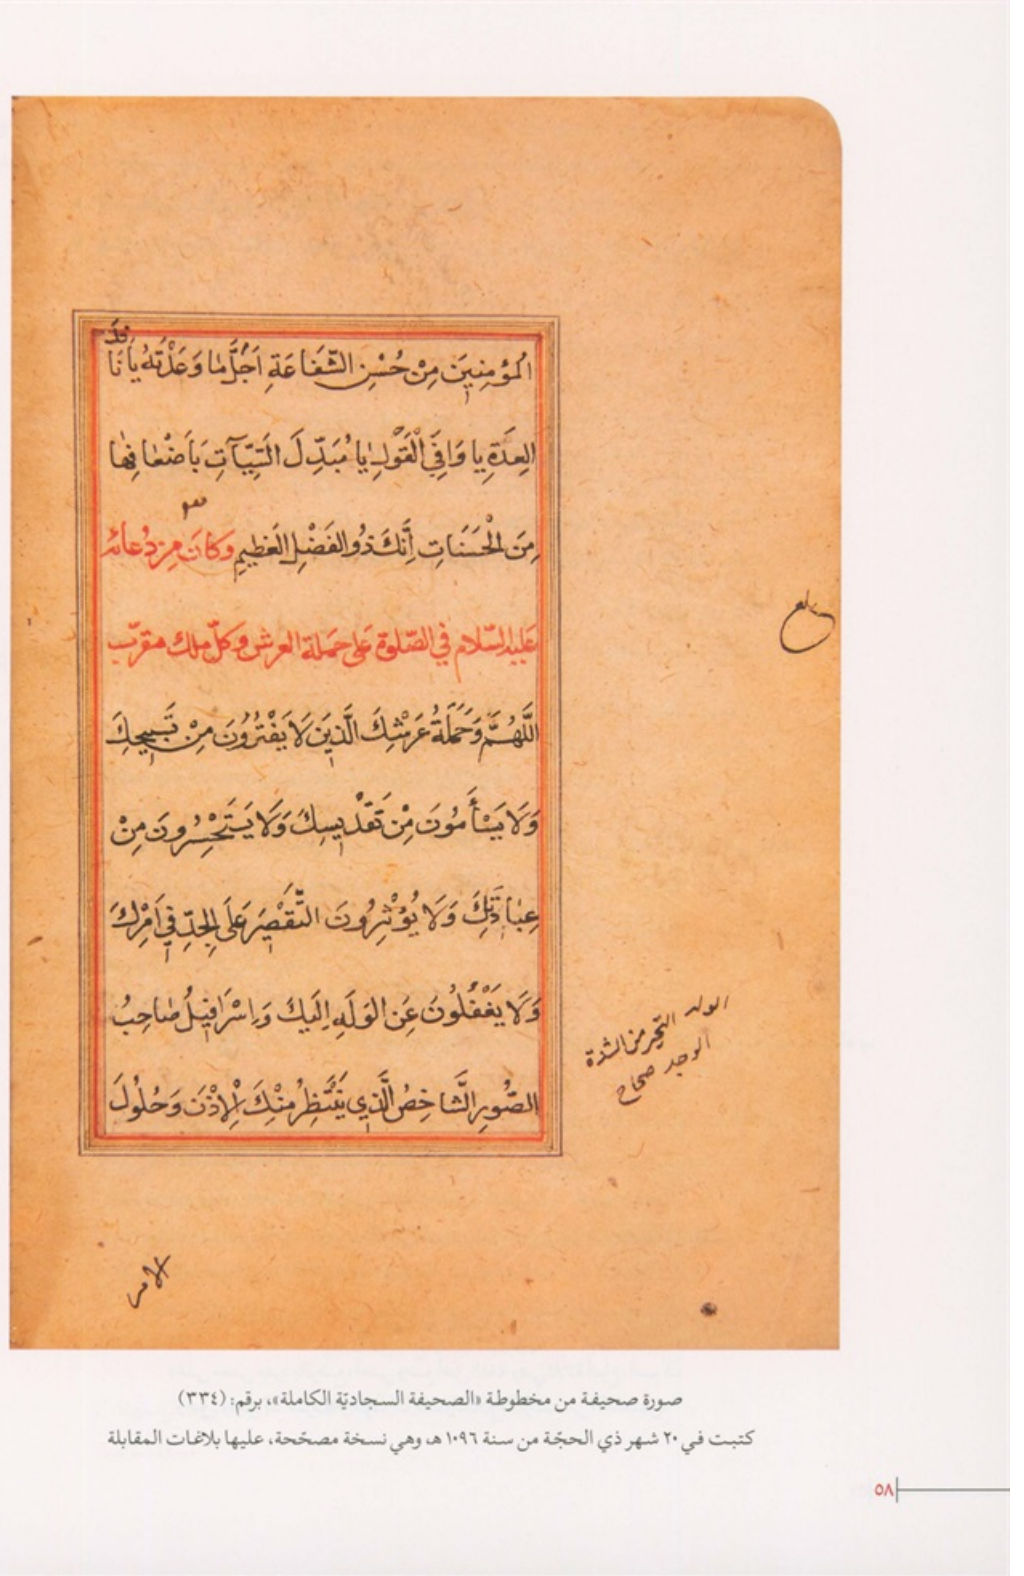 المُؤمِنِينَ مِنْ حُسْنِ الشَّفَاعَةِ اَجَلَّ مَا وَعَدْتَهُ يَا نَافِذَ
العِدَةِ يا وَافِيَ الْقَوْلِ يا مُبَدِّلَ السَّيِّآتِ بِاَضْعَافِهَا
مِنَ الْحَسَنَاتِ اِنَّكَ ذُو الفَضْلِ العَظِيمِ وَكَانَ مِن دُعَائه
عَلَيه السّلام في الصّلوة عَلى حَمَلة العرش وكلّ ملك مقرّب
اللَّهُمَّ وَحَمَلَةُ عَرْشِكَ الَّذِينَ لَا يَفْتُرُونَ مِنْ تَسْبِيحِكَ
وَلَا يَسْأَمُونَ مِنْ تَقْدِيسِكَ وَلَا يَسْتَحْسِرُونَ مِنْ
عِبَادَتِكَ وَلَا يُؤْثِرُونَ التَّقْصِيرَ عَلَى الجِدِّ فِي اَمْرِكَ
وَلَا يَغْفُلُونَ عَنِ الوَلَهِ اِلَيْكَ وَاِسْرَافِيلُ صَاحِبُ
الصُّورِ الشَّاخِصُ الَّذِي يَنْتَظِرُ مِنْكَ الْاِذْنَ وَحُلُولَ
بلغ
الوله التحير من الشدة
الوجد صحاح
الامر
صورة صحيفة من مخطوطة «الصحيفة السجاديّة الكاملة»، برقم: (٣٣٤)
كتبت في ٢٠ شهر ذي الحجّة من سنة ١٠٩٦ هـ، وهي نسخة مصحّحة، عليها بلاغات المقابلة
٥٨